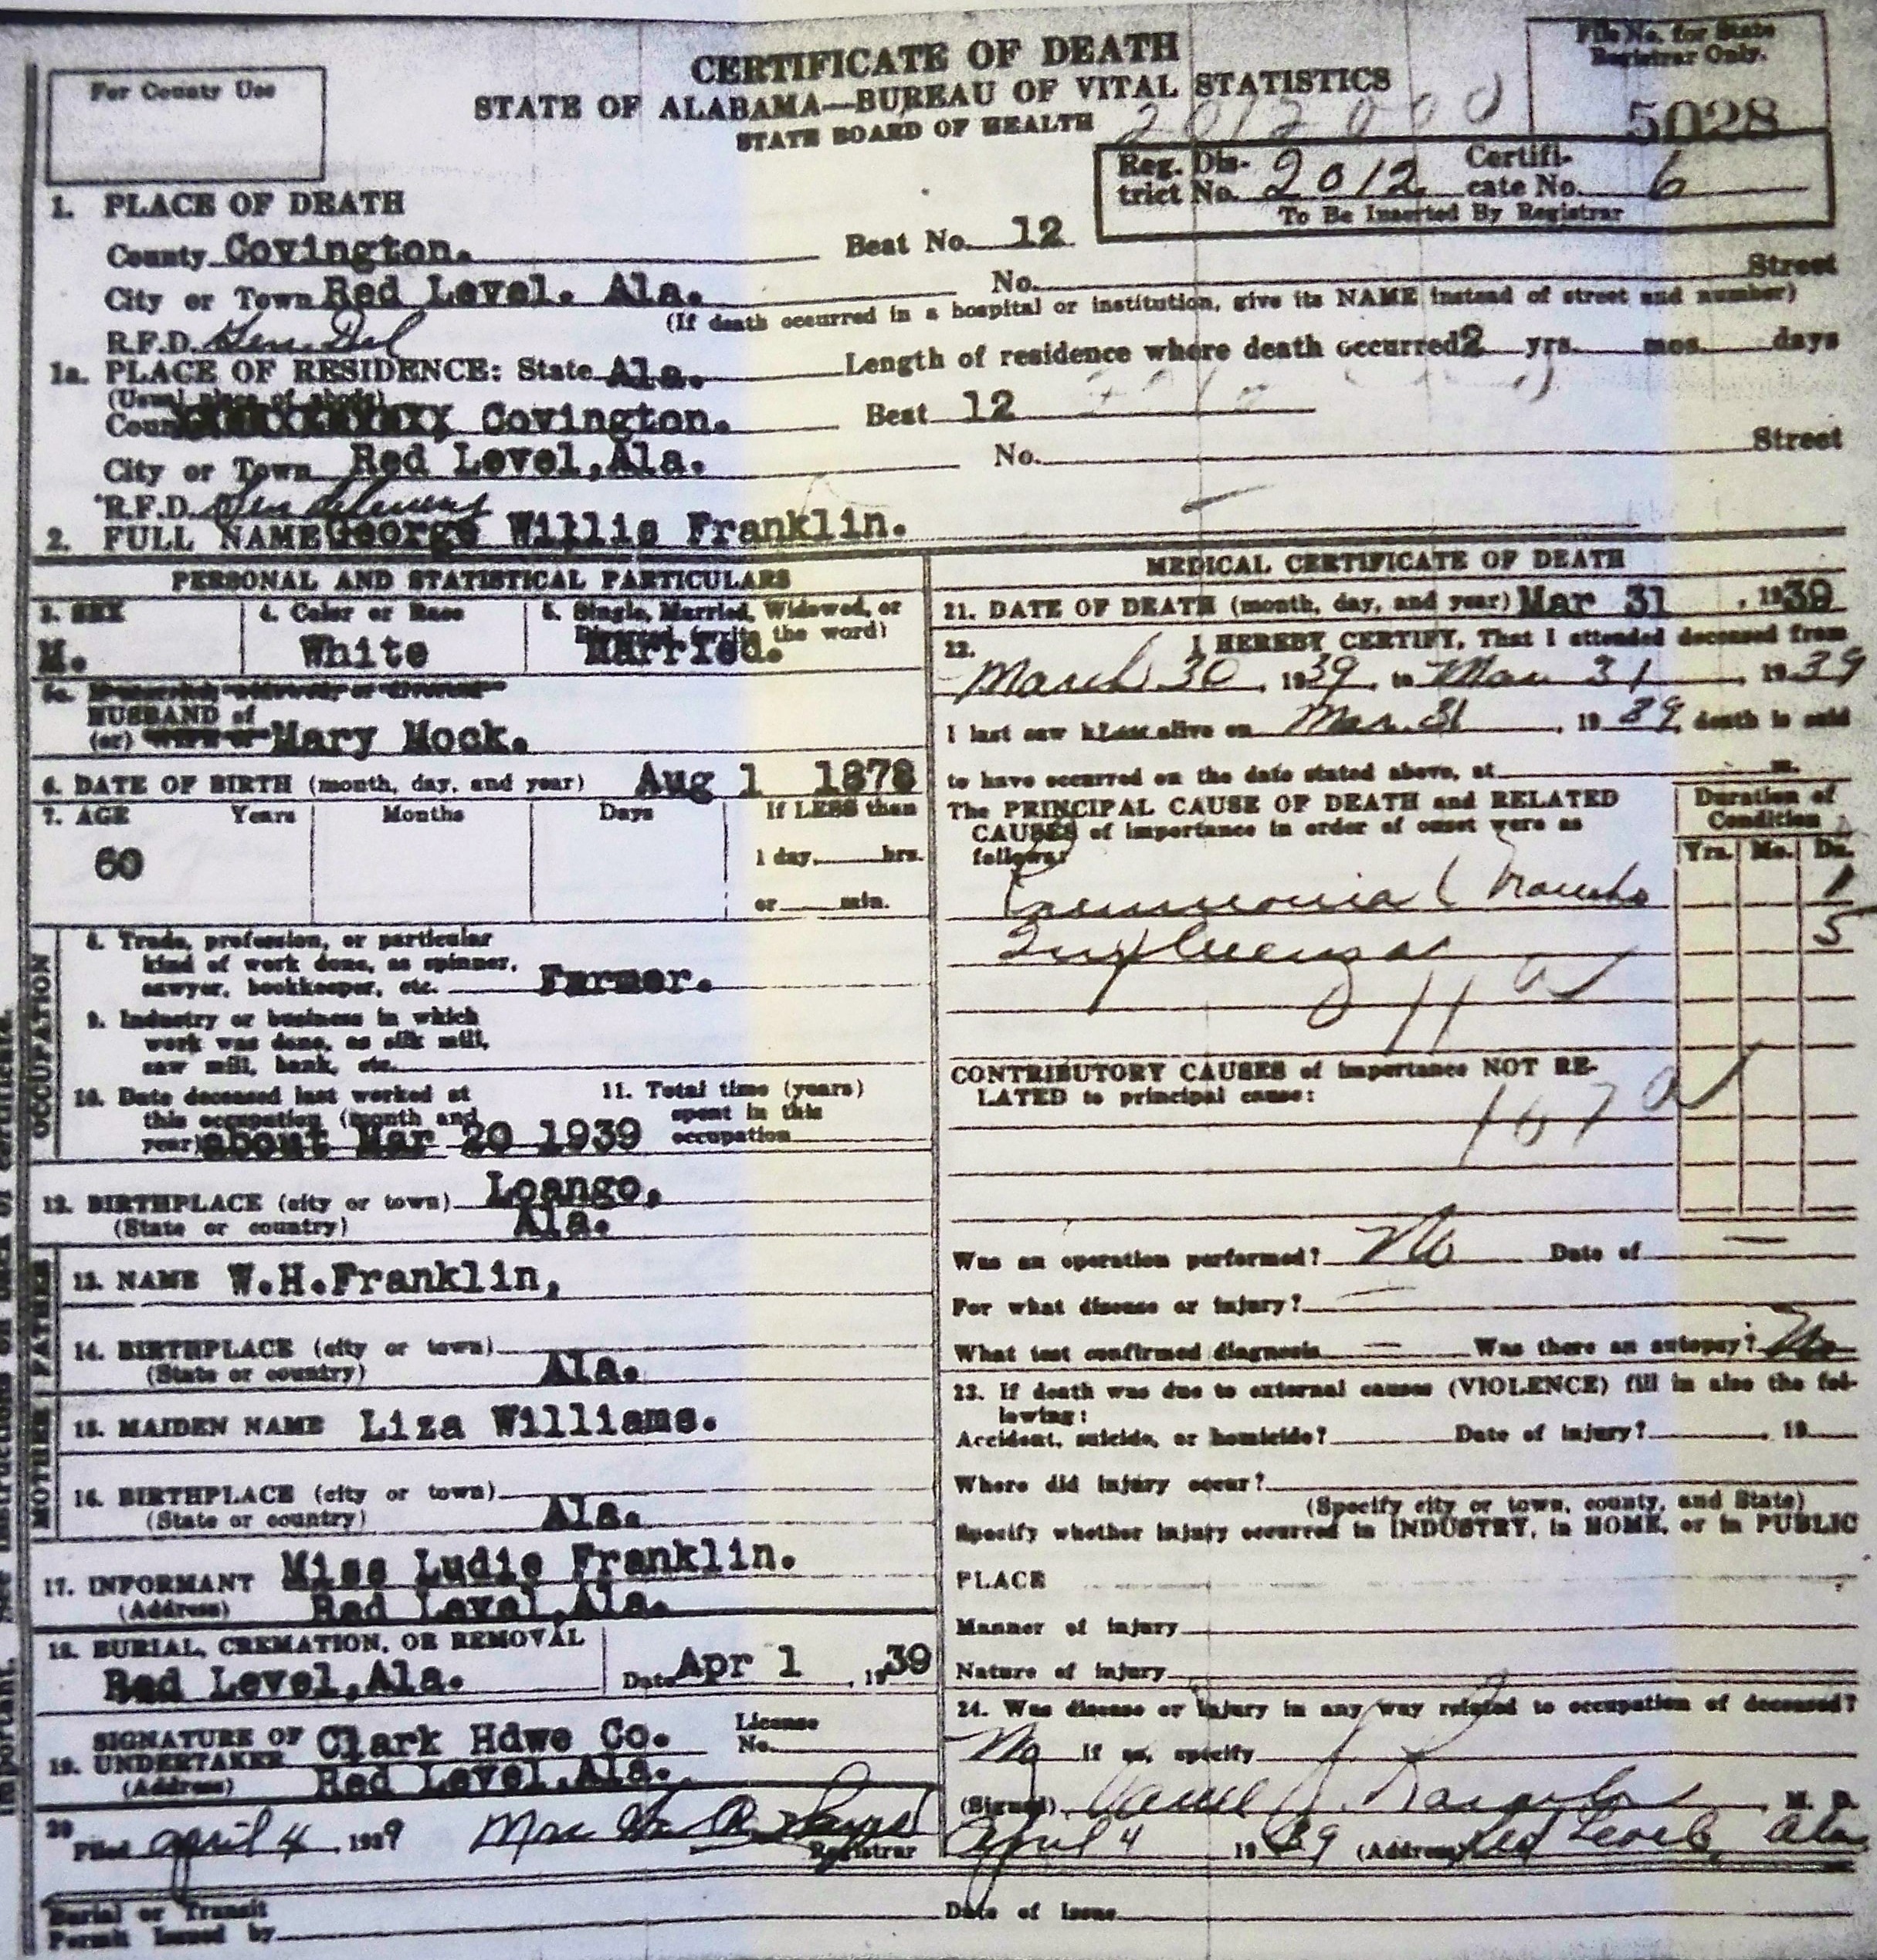 CERTIFICATE OF DEATH
STATE OF ALABAMA—BUREAU OF VITAL STATISTICS
STATE BOARD OF HEALTH
For County Use
File No. for State
Registrar Only.
5028
2012000
Reg. Dis- 2012 Certifi- 6
trict No. cate No.
To Be Inserted By Registrar
1. PLACE OF DEATH
County Covington. Beat No. 12
City or Town Red Level. Ala. No. Street
(If death occurred in a hospital or institution, give its NAME instead of street and number)
R.F.D. Gen Del
Length of residence where death occurred 2 yrs. mos. days
1a. PLACE OF RESIDENCE: State Ala.
(Usual place of abode)
Coun Covington. Beat 12
City or Town Red Level, Ala. No. Street
R.F.D. Gen
2. FULL NAME George Willis Franklin.
PERSONAL AND STATISTICAL PARTICULARS
3. SEX 4. Color or Race 5. Single, Married, Widowed, or
Divorced (write the word)
M. White Married.
5a. If married, widowed, or divorced
HUSBAND of
(or) WIFE of Mary Mock.
6. DATE OF BIRTH (month, day, and year) Aug 1 1878
7. AGE Years Months Days If LESS than
60 1 day, hrs.
or min.
OCCUPATION
8. Trade, profession, or particular
kind of work done, as spinner,
sawyer, bookkeeper, etc. Farmer.
9. Industry or business in which
work was done, as silk mill,
saw mill, bank, etc.
10. Date deceased last worked at
this occupation (month and
year) about Mar 20 1939
11. Total time (years)
spent in this
occupation
12. BIRTHPLACE (city or town) Loango,
(State or country) Ala.
FATHER
13. NAME W.H.Franklin,
14. BIRTHPLACE (city or town)
(State or country) Ala.
MOTHER
15. MAIDEN NAME Liza Williams.
16. BIRTHPLACE (city or town)
(State or country) Ala.
17. INFORMANT Miss Ludie Franklin.
(Address) Red Level, Ala.
18. BURIAL, CREMATION, OR REMOVAL
Red Level, Ala. Date Apr 1, 1939
SIGNATURE OF Clark Hdwe Co. License
19. UNDERTAKER No.
(Address) Red Level, Ala.
20 Filed april 4, 1939 Mrs
Registrar
Burial or Transit
Permit Issued by
Date of Issue
MEDICAL CERTIFICATE OF DEATH
21. DATE OF DEATH (month, day, and year) Mar 31, 1939
22. I HEREBY CERTIFY, That I attended deceased from
March 30, 1939, to Mar 31, 1939
I last saw him alive on Mar. 31, 1939, death is said
to have occurred on the date stated above, at m.
The PRINCIPAL CAUSE OF DEATH and RELATED
CAUSES of importance in order of onset were as
follows:
Duration of
Condition
Yrs. Mo. Da.
Pneumonia (Broncho 1
Influenza 5
11 a
CONTRIBUTORY CAUSES of importance NOT RE-
LATED to principal cause:
107 a
Was an operation performed? No Date of —
For what disease or injury? —
What test confirmed diagnosis — Was there an autopsy? No
23. If death was due to external causes (VIOLENCE) fill in also the fol-
lowing:
Accident, suicide, or homicide? Date of injury? , 19
Where did injury occur?
(Specify city or town, county, and State)
Specify whether injury occurred in INDUSTRY, in HOME, or in PUBLIC
PLACE
Manner of injury
Nature of injury
24. Was disease or injury in any way related to occupation of deceased?
No If so, specify
(Signed) M. D.
April 4 1939 (Address) Red Level, Ala